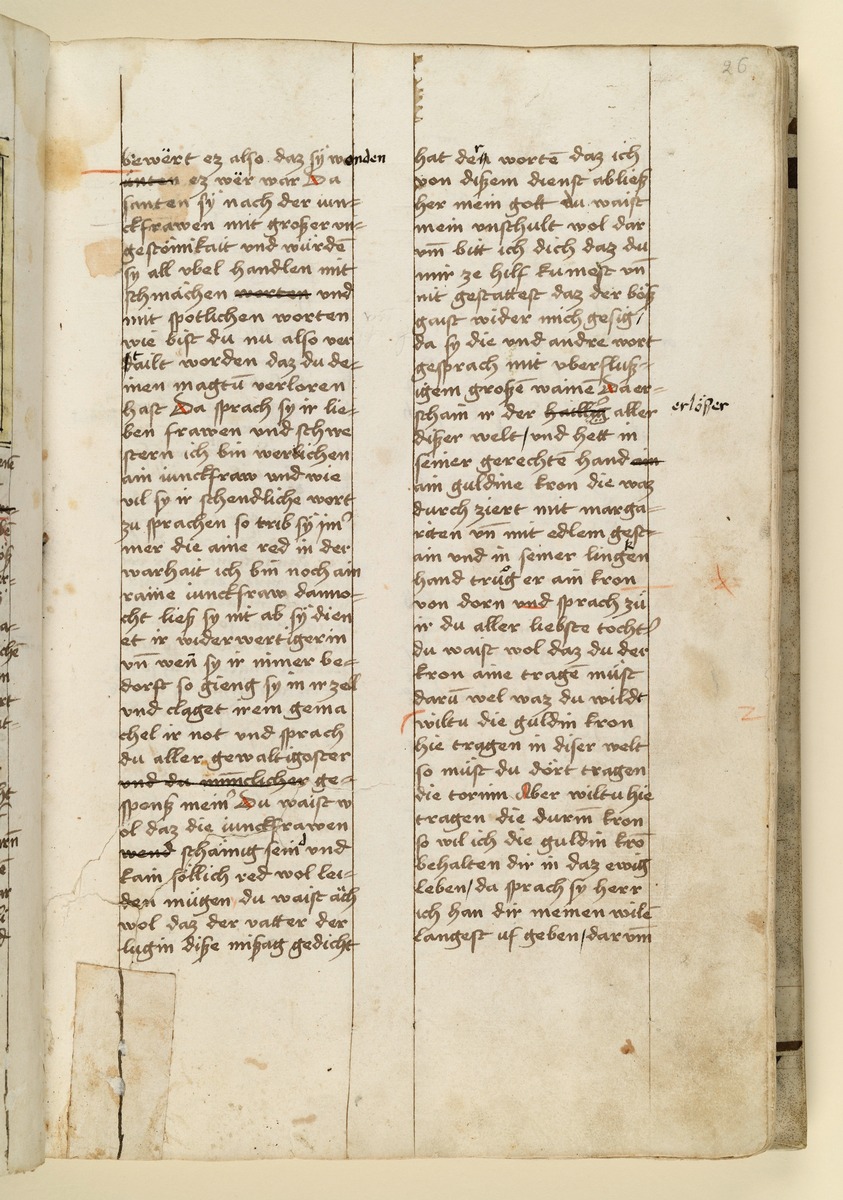 26
bewërt ez also daz sÿ wonden
ez wër war Da
santen sÿ nach der iun-
ckfrawen mit großer vn-
gestömikait vnd würdē
sy all vbel handlen mit
schmachen worten vnd
mit spotlichen worten
wie bist du nu also ver
tailt worden daz du de-
inen magtū verloren
hast Da sprach sy ir lie-
ben frawen vnd schwe
stern ich bin werlichen
ain iunckfraw vnd wie
vil sy ir schendliche wort
zu sprachen so trib sÿ im̄
mer die aine red in der
warhait ich bin noch ain
raine iunckfraw danno-
cht ließ sy nit ab sÿ dien
et ir widerwertigerin
vn̄ weñ sy ir nimer be-
dorft so gieng sy in ir zel
vnd claget irem gema
chel ir not vnd sprach
du aller gewaltigoster
vnd du ge-
spenß mein Du waist w
ol daz die iunckfrawen
wend schämig sein vnd
kain söllich red wol lei-
den mügen du waist äch
wol daz der vatter der
lugin diße mißag gedicht
hat dērn wortē daz ich
von dißem dienst abließ
her mein gott du waist
mein vnschult wol dar
vm̄ bitt ich dich daz du
mir ze hilf kumest vn̄
nit gestattest daz der böß
gaist wider mich gesig/
da sy die vnd andre wort
gesprach mit vberfluß-
igem großē wainē Da er-
schain ir der hailig aller erlößer
dißer welt/vnd hett in
seiner gerechtē hand ain
ain guldine kron die waz
durch ziert mit marga-
riten vn̄ mit edlem gest-
ain vnd in seiner lingken
hand trůg er ain kron
von dorn vnd sprach zů
ir du aller liebste tocht'
du waist wol daz du der
kron aine tragē müst
darū wel waz du wildt
wiltu die guldin kron
hie tragen in diser welt
so müst du dört tragen
die tornin Aber wiltu hie
tragen die durnī kron
so wil ich die guldin krō
behalten dir in daz ewig
leben/da sprach sy herr
ich han dir meinen wilē
langest uf geben/dar vm̄